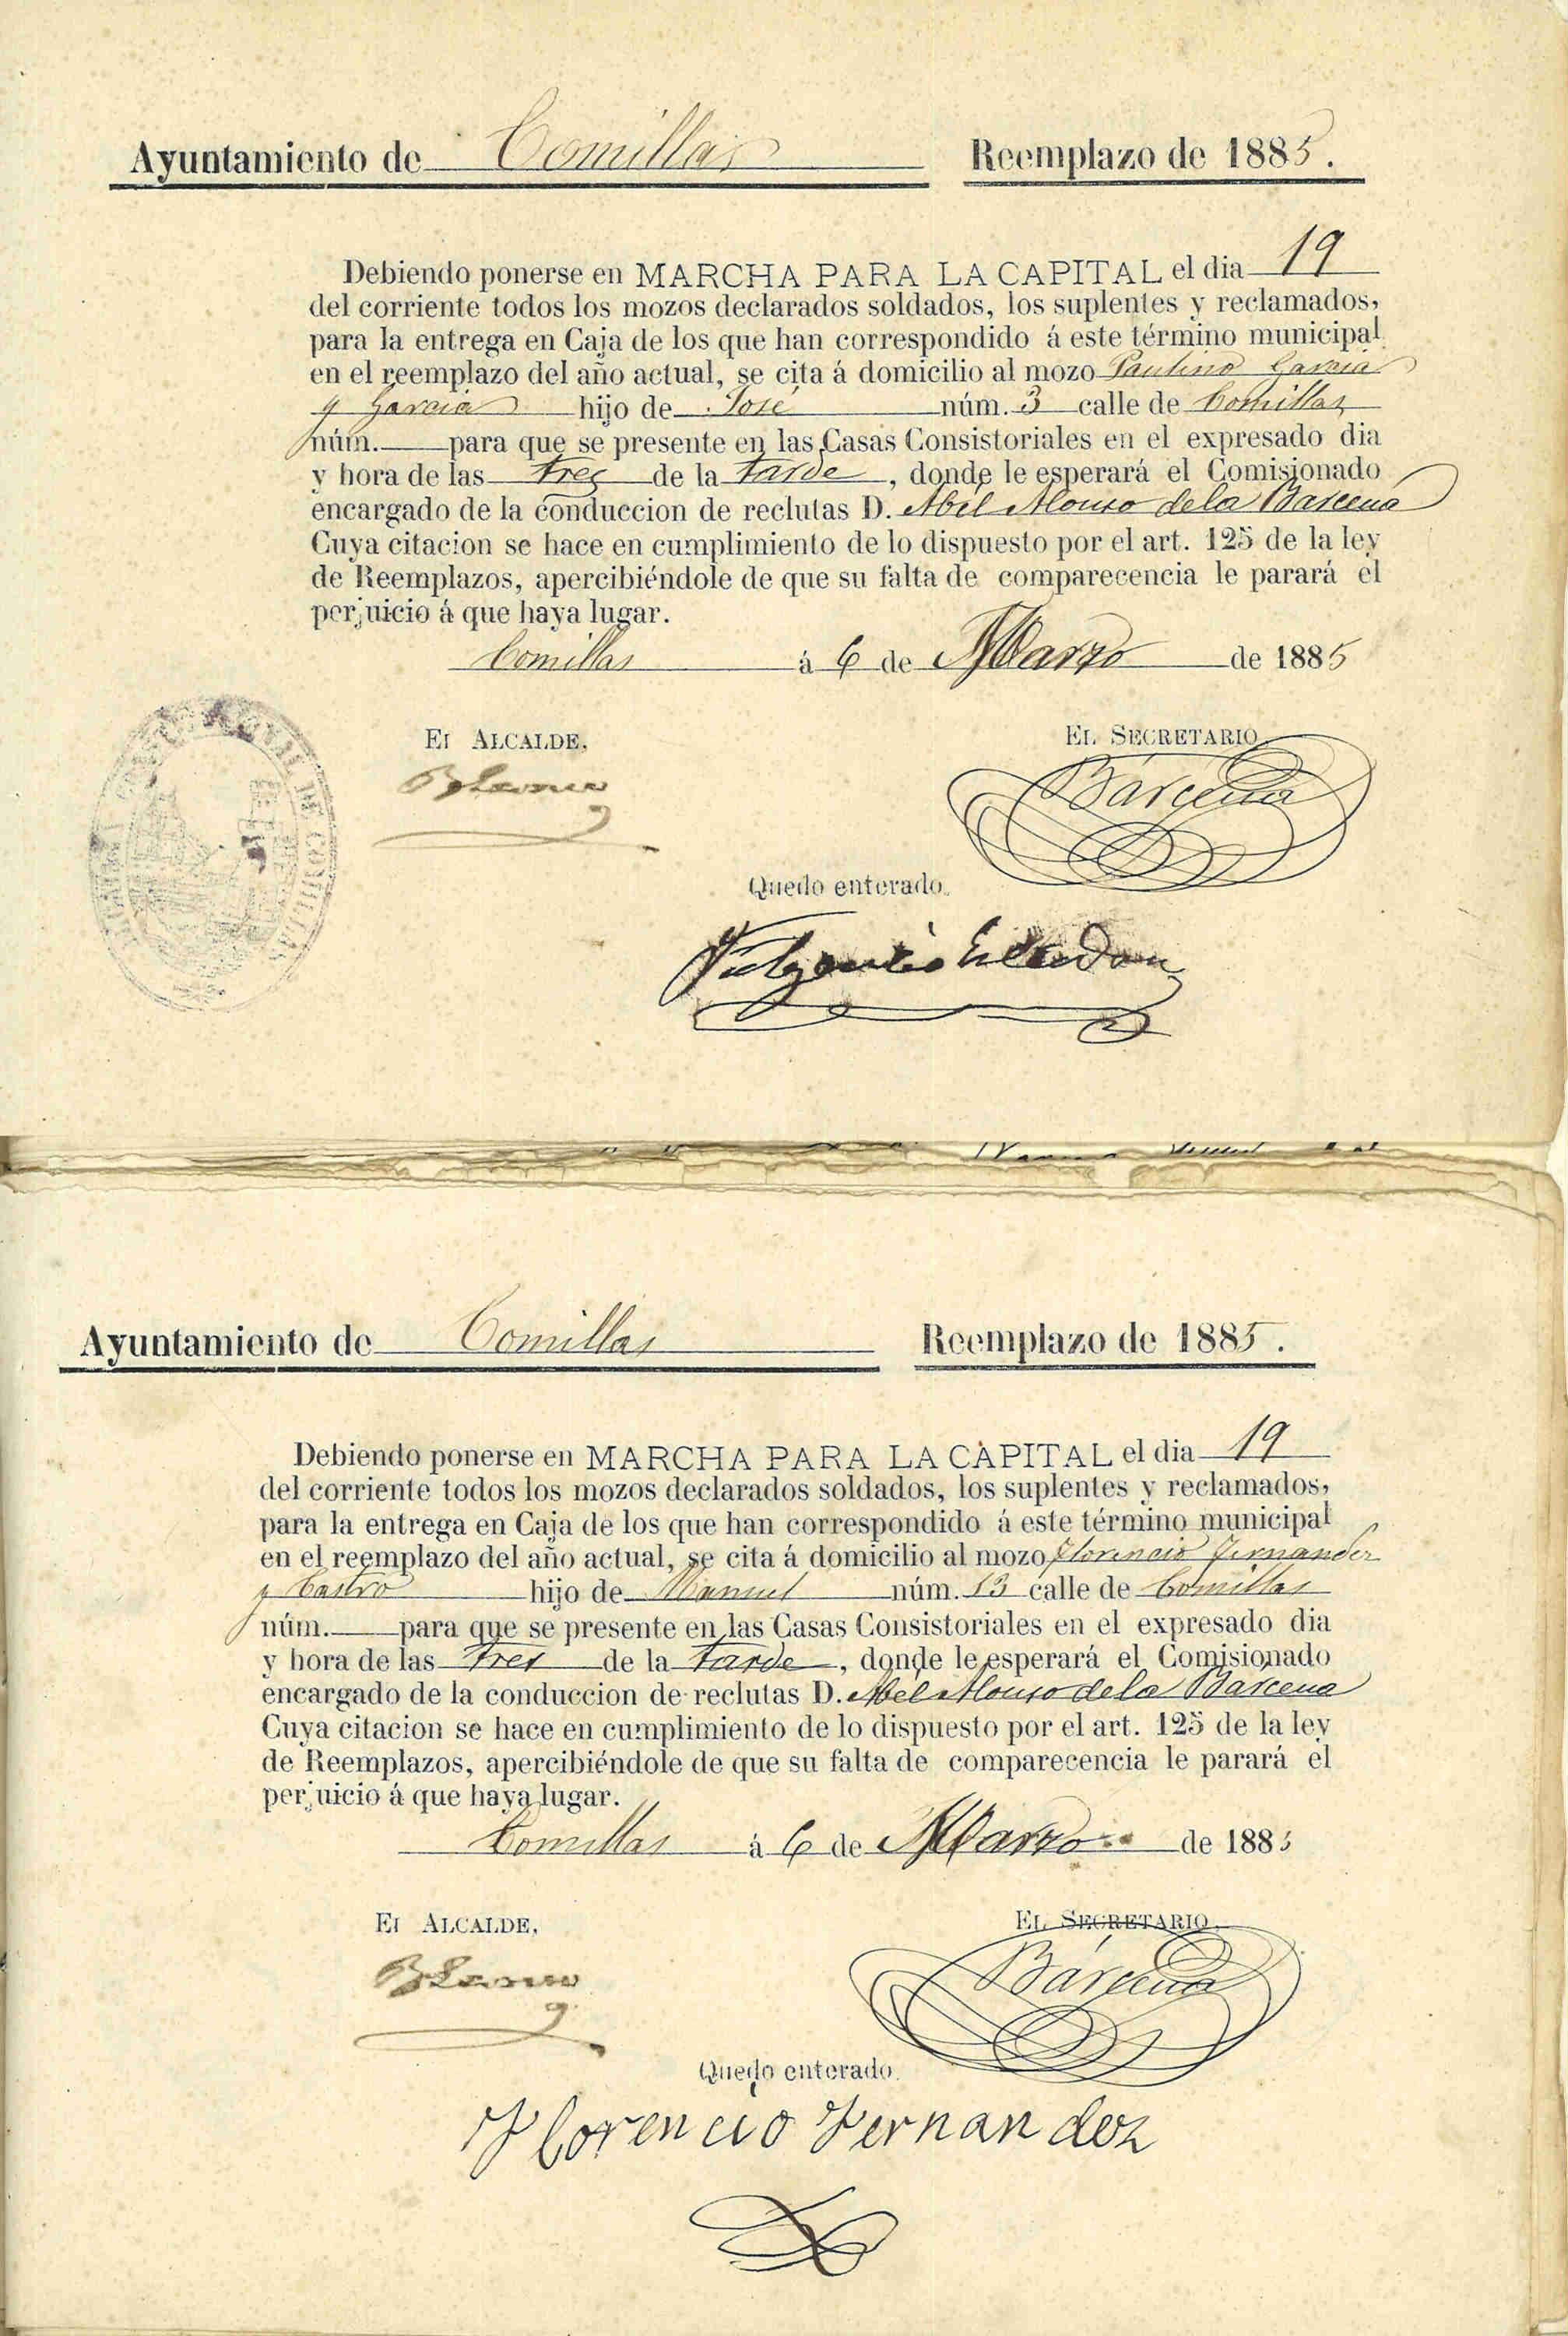 Ayuntamiento de Comillas Reemplazo de 1885.
Debiendo ponerse en MARCHA PARA LA CAPITAL el dia 19
del corriente todos los mozos declarados soldados, los suplentes y reclamados,
para la entrega en Caja de los que han correspondido á este término municipal
en el reemplazo del año actual, se cita á domicilio al mozo Paulino Garcia
y Garcia hijo de José núm. 3 calle de Comillas
núm. para que se presente en las Casas Consistoriales en el expresado dia
y hora de las tres de la tarde, donde le esperará el Comisionado
encargado de la conduccion de reclutas D. Abel Alonso de la Barcena
Cuya citacion se hace en cumplimiento de lo dispuesto por el art. 125 de la ley
de Reemplazos, apercibiéndole de que su falta de comparecencia le parará el
perjuicio á que haya lugar.
Comillas á 6 de Marzo de 1885
El ALCALDE, EL SECRETARIO,
Bárcena
Quedo enterado.
Ayuntamiento de Comillas Reemplazo de 1885.
Debiendo ponerse en MARCHA PARA LA CAPITAL el dia 19
del corriente todos los mozos declarados soldados, los suplentes y reclamados,
para la entrega en Caja de los que han correspondido á este término municipal
en el reemplazo del año actual, se cita á domicilio al mozo Florencio Fernandez
y Castro hijo de Manuel núm. 13 calle de Comillas
núm. para que se presente en las Casas Consistoriales en el expresado dia
y hora de las tres de la tarde, donde le esperará el Comisionado
encargado de la conduccion de reclutas D. Abel Alonso de la Barcena
Cuya citacion se hace en cumplimiento de lo dispuesto por el art. 125 de la ley
de Reemplazos, apercibiéndole de que su falta de comparecencia le parará el
perjuicio á que haya lugar.
Comillas á 6 de Marzo de 1885
El ALCALDE, EL SECRETARIO,
Bárcena
Quedo enterado.
Florencio Fernandez